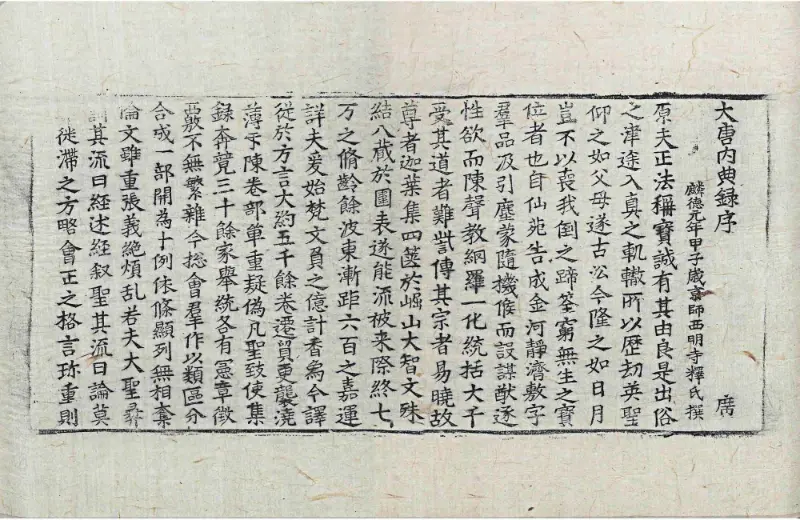 大唐内典録序 廣
麟德元年甲子歲京師西明寺釋氏撰
原夫正法稱寶誠有其由良是出俗
之津途入真之軌轍所以歷劫英聖
仰之如父母遂古迄今隆之如日月
豈不以喪我倒之蹄筌窮無生之寶
位者也自仙苑告成金河靜濟敷字
羣品及引塵蒙隨機候而設謀猷逐
性欲而陳聲教網羅一化統括大千
受其道者難訾傳其宗者易曉故
尊者迦葉集四篋於崛山大智文殊
結八藏於圍表遂能流被来際終七
万之脩齡餘波東漸距六百之嘉運
詳夫爰始梵文負之億計香象今譯
從於方言大約五千餘卷遷貿更襲澆
薄乎陳卷部單重疑偽凡聖致使集
録奔競三十餘家舉統各有憲章徵
覈不無繁雜今揔會羣作以類區分
合成一部開為十例依條顯列無相奪
倫文雖重張義絶煩乱若夫大聖彞
訓其流曰經述經叙聖其流曰論莫
徙滯之方略會正之格言珎重則